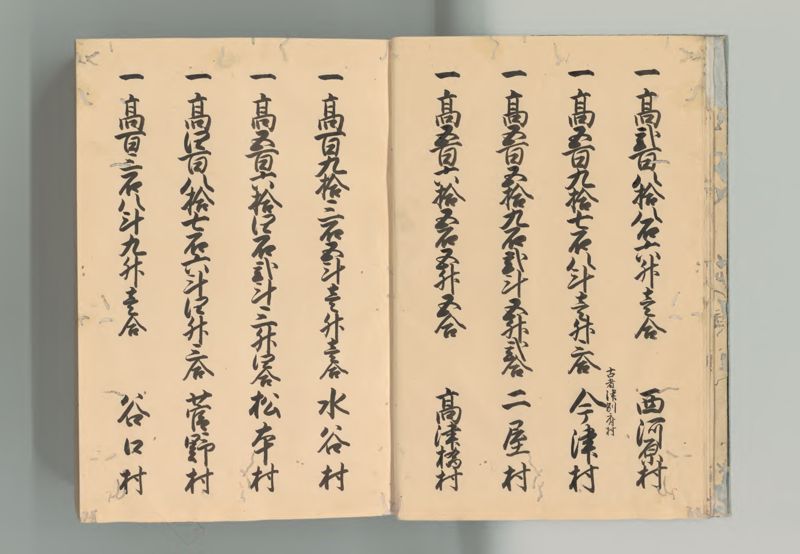 一 高弐百八拾八石六升壱合 西河原村
一 高五百九拾七石八斗壱升三合 今津村
古者津別府村
一 高五百五拾九石弐斗五升弐合 二屋村
一 高五百六拾五石五升五合 高津橋村
一 高百九拾三石五斗壱升壱合 水谷村
一 高五百六拾四石弐斗三升四合 松本村
一 高四百八拾七石六斗四升三合 菅野村
一 高百三石八斗九升壱合 谷口村